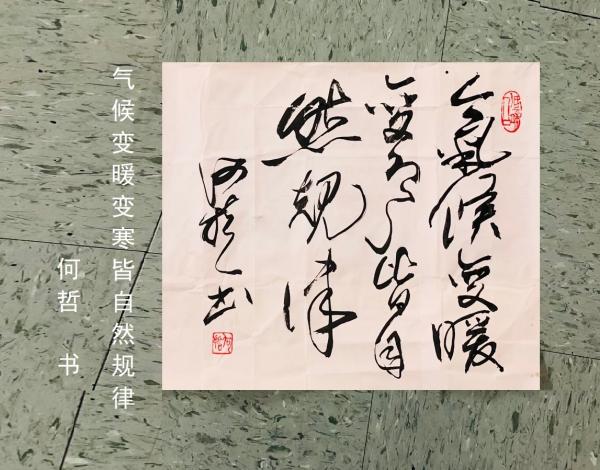 氣候变暖
变寒皆自
然規律
何哲书
气候变暖变寒皆自然规律
何哲 书